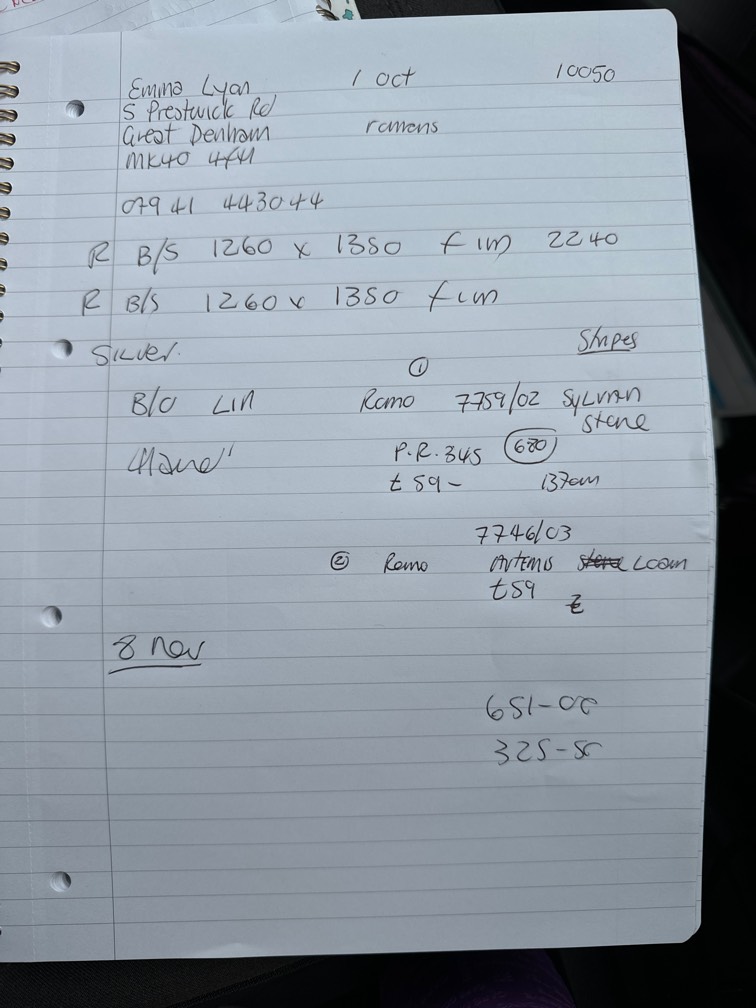 Emma Lyon 1 Oct 10050
5 Prestwick Rd
Great Denham romans
MK40 4FH
07941 443044
R B/S 1260 x 1350 fim 2240
R B/S 1260 x 1350 fim
Silver. Stripes
①
B/O Lin Romo 7759/02 Sylvan
Stone
P.R. 345 680
£59- 137cm
7746/03
② Romo Artemis Loom
£59
£
8 Nov
651-00
325-50